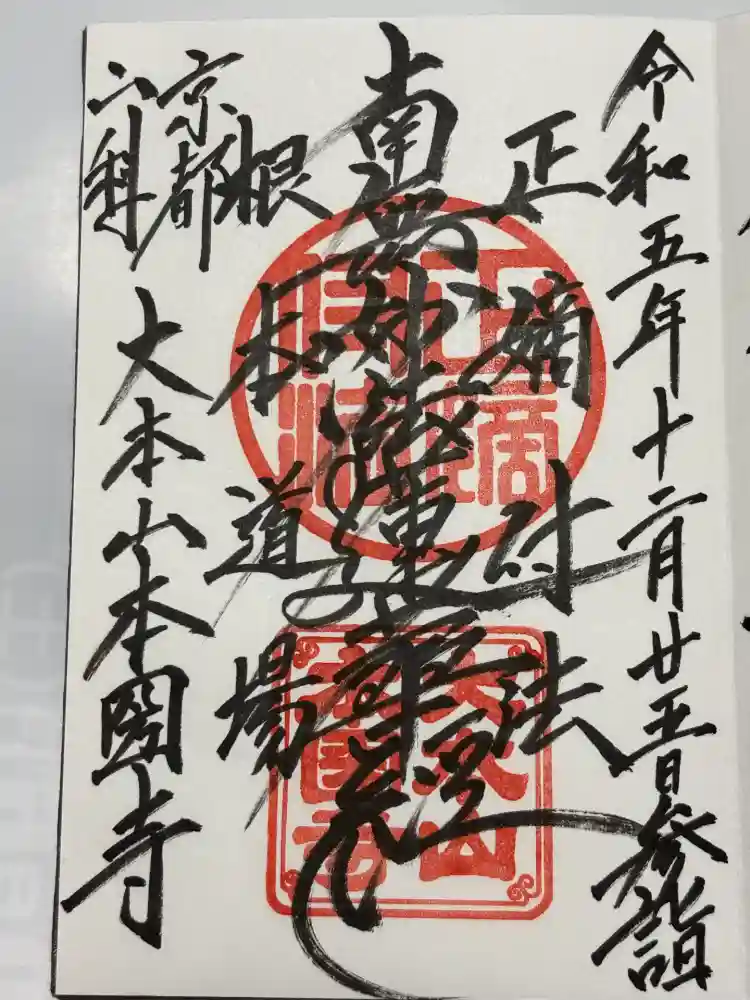 令和五年十二月廿五日参詣
正嫡付法
南無妙法蓮華経
根本道場
京都
山科
大本山本圀寺
正嫡付法